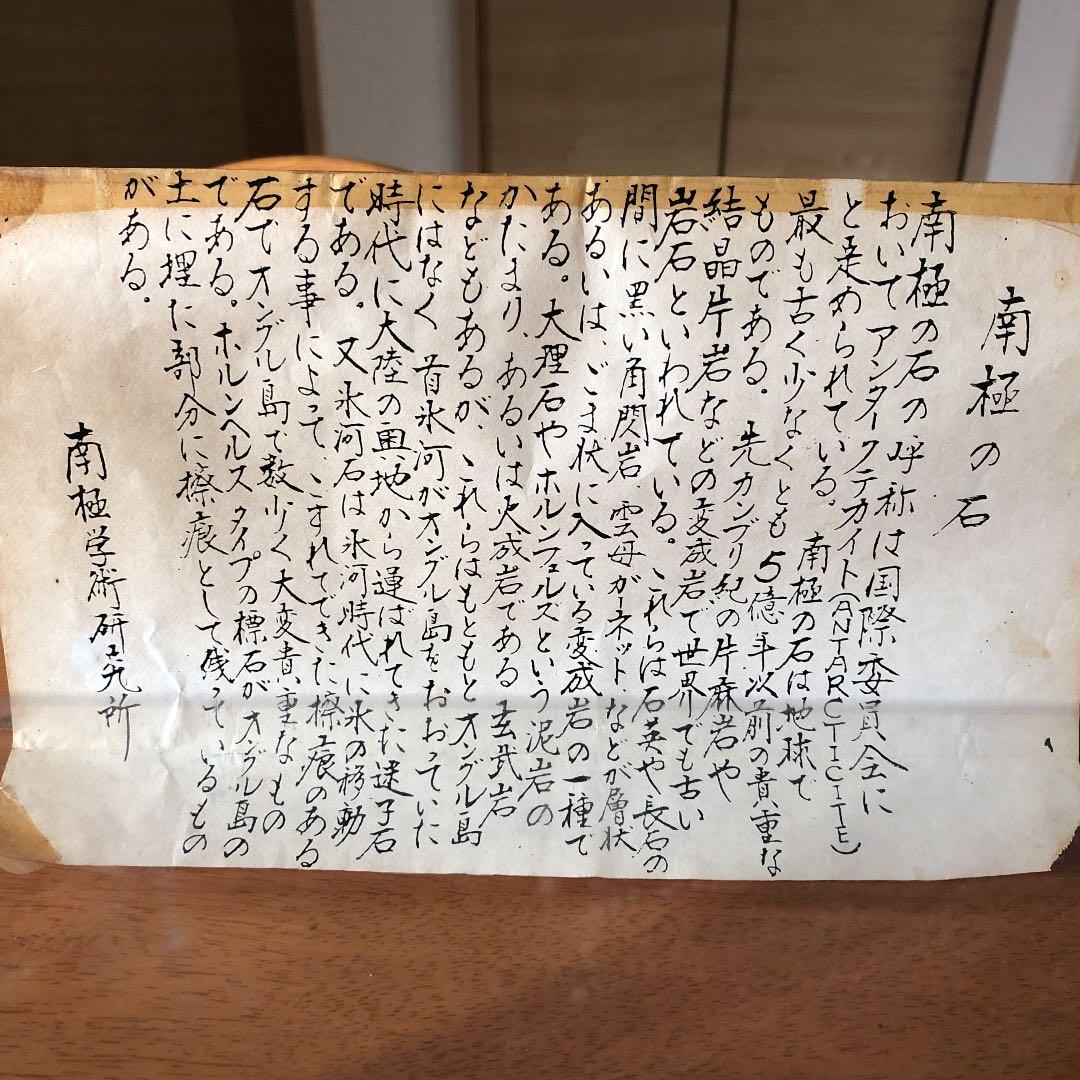 南極の石
南極の石の呼称は国際委員会に
おいてアンタークテカイト(ANTARCTICITE)
と定められている。南極の石は地球で
最も古く少なくとも5億年以前の貴重な
ものである。先カンブリ紀の片麻岩や
結晶片岩などの変成岩で世界でも古い
岩石といわれている。これらは石英や長石の
間に黒い角閃岩 雲母ガーネットなどが層状
あるいは、ごま状に入っている変成岩の一種で
ある。大理石やホルンフェルズという泥岩の
かたまり、あるいは火成岩である玄武岩
などもあるが、これらはもともとオングル島
にはなく 首氷河がオングル島をおおっていた
時代に大陸の奥地から運ばれてきた迷子石
である。又氷河石は氷河時代に氷の移動
する事によって、こすれてできた擦痕のある
石でオングル島で数少く大変貴重なもの
である。ホルンヘルスタイプの標石がオングル島の
土に埋た部分に擦痕として残っているもの
がある。
南極学術研究所